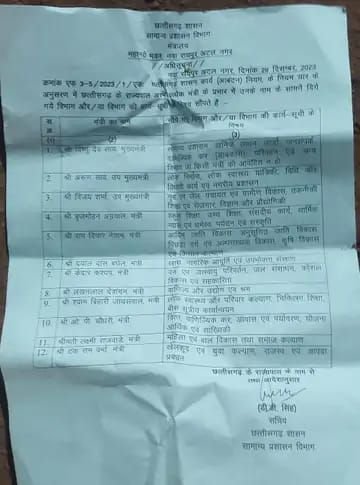 छत्तीसगढ़ शासन
सामान्य प्रशासन विभाग
मंत्रालय
महानदी भवन, नवा रायपुर अटल नगर
//अधिसूचना//
नवा रायपुर अटल नगर, दिनांक 29 दिसम्बर, 2023
क्रमांक एफ 3-5/2023/1/एक छत्तीसगढ़ शासन कार्य (आबंटन) नियम, के नियम चार के
अनुसरण में छत्तीसगढ़ के राज्यपाल प्रत्येक मंत्री के प्रभार में उनके नाम के सामने दिये
गये विभाग और/या विभाग की कार्य-सूची के विषय सौंपते है -
स. क्र.
मंत्री का नाम
सौंपे गये विभाग और/या विभाग की कार्य-सूची के विषय
(1) (2) (3)
1. श्री विष्णु देव साय, मुख्यमंत्री
सामान्य प्रशासन, खनिज साधन, ऊर्जा, जनसम्पर्क,
वाणिज्यिक कर (आबकारी), परिवहन एवं अन्य
विभाग जो किसी मंत्री को आबंटित न हो
2. श्री अरुण साव, उप मुख्यमंत्री
लोक निर्माण, लोक स्वास्थ्य यांत्रिकी, विधि और
विधायी कार्य एवं नगरीय प्रशासन
3. श्री विजय शर्मा, उप मुख्यमंत्री
गृह एवं जेल, पंचायत एवं ग्रामीण विकास, तकनीकी
शिक्षा एवं रोजगार, विज्ञान और प्रौद्योगिकी
4. श्री बृजमोहन अग्रवाल, मंत्री
स्कूल शिक्षा, उच्च शिक्षा, संसदीय कार्य, धार्मिक
न्यास एवं धर्मस्व, पर्यटन एवं संस्कृति
5. श्री राम विचार नेताम, मंत्री
आदिम जाति विकास, अनुसूचित जाति विकास,
पिछड़ा वर्ग एवं अल्पसंख्यक विकास, कृषि विकास
एवं किसान कल्याण
6. श्री दयाल दास बघेल, मंत्री
खाद्य, नागरिक आपूर्ति एवं उपभोक्ता संरक्षण
7. श्री केदार कश्यप, मंत्री
वन एवं जलवायु परिवर्तन, जल संसाधन, कौशल
विकास एवं सहकारिता
8. श्री लखनलाल देवांगन, मंत्री
वाणिज्य और उद्योग एवं श्रम
9. श्री श्याम बिहारी जायसवाल, मंत्री
लोक स्वास्थ्य और परिवार कल्याण, चिकित्सा शिक्षा,
बीस सूत्रीय कार्यान्वयन
10. श्री ओ.पी. चौधरी, मंत्री
वित्त, वाणिज्यिक कर, आवास एवं पर्यावरण, योजना
आर्थिक एवं सांख्यिकी
11. श्रीमती लक्ष्मी राजवाड़े, मंत्री
महिला एवं बाल विकास तथा समाज कल्याण
12. श्री टंक राम वर्मा, मंत्री
खेलकूद एवं युवा कल्याण, राजस्व एवं आपदा
प्रबंधन
छत्तीसगढ़ के राज्यपाल के नाम से
तथा आदेशानुसार
(डी.डी. सिंह)
सचिव
छत्तीसगढ़ शासन
सामान्य प्रशासन विभाग